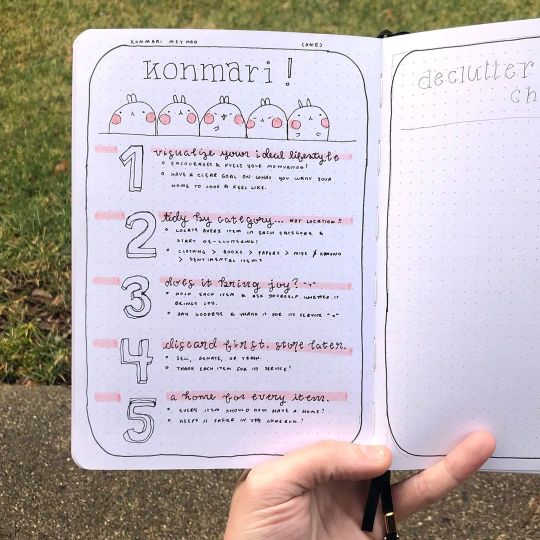 KONMARI METHOD (ONE)
Konmari!
1 visualize your ideal lifestyle
ENCOURAGES & FUELS YOUR MOTIVATION!
HAVE A CLEAR GOAL ON WHAT YOU WANT YOUR
HOME TO LOOK & FEEL LIKE.
2 tidy by category... NOT LOCATION!!
LOCATE EVERY ITEM IN EACH CATEGORY &
START DE-CLUTTERING!
CLOTHING > BOOKS > PAPERS > MISC / KOMONO
> SENTIMENTAL ITEMS
3 does it bring joy?
HOLD EACH ITEM & ASK YOURSELF WHETHER IT
BRINGS JOY.
SAY GOODBYE & THANK IT FOR ITS SERVICE
4 discard first. store later.
SELL, DONATE, OR TRASH.
THANK EACH ITEM FOR ITS SERVICE!
5 a home for every item.
EVERY ITEM SHOULD NOW HAVE A HOME!
KEEPS IT TIDIED IN THE LONGRUN!
declutter
ch